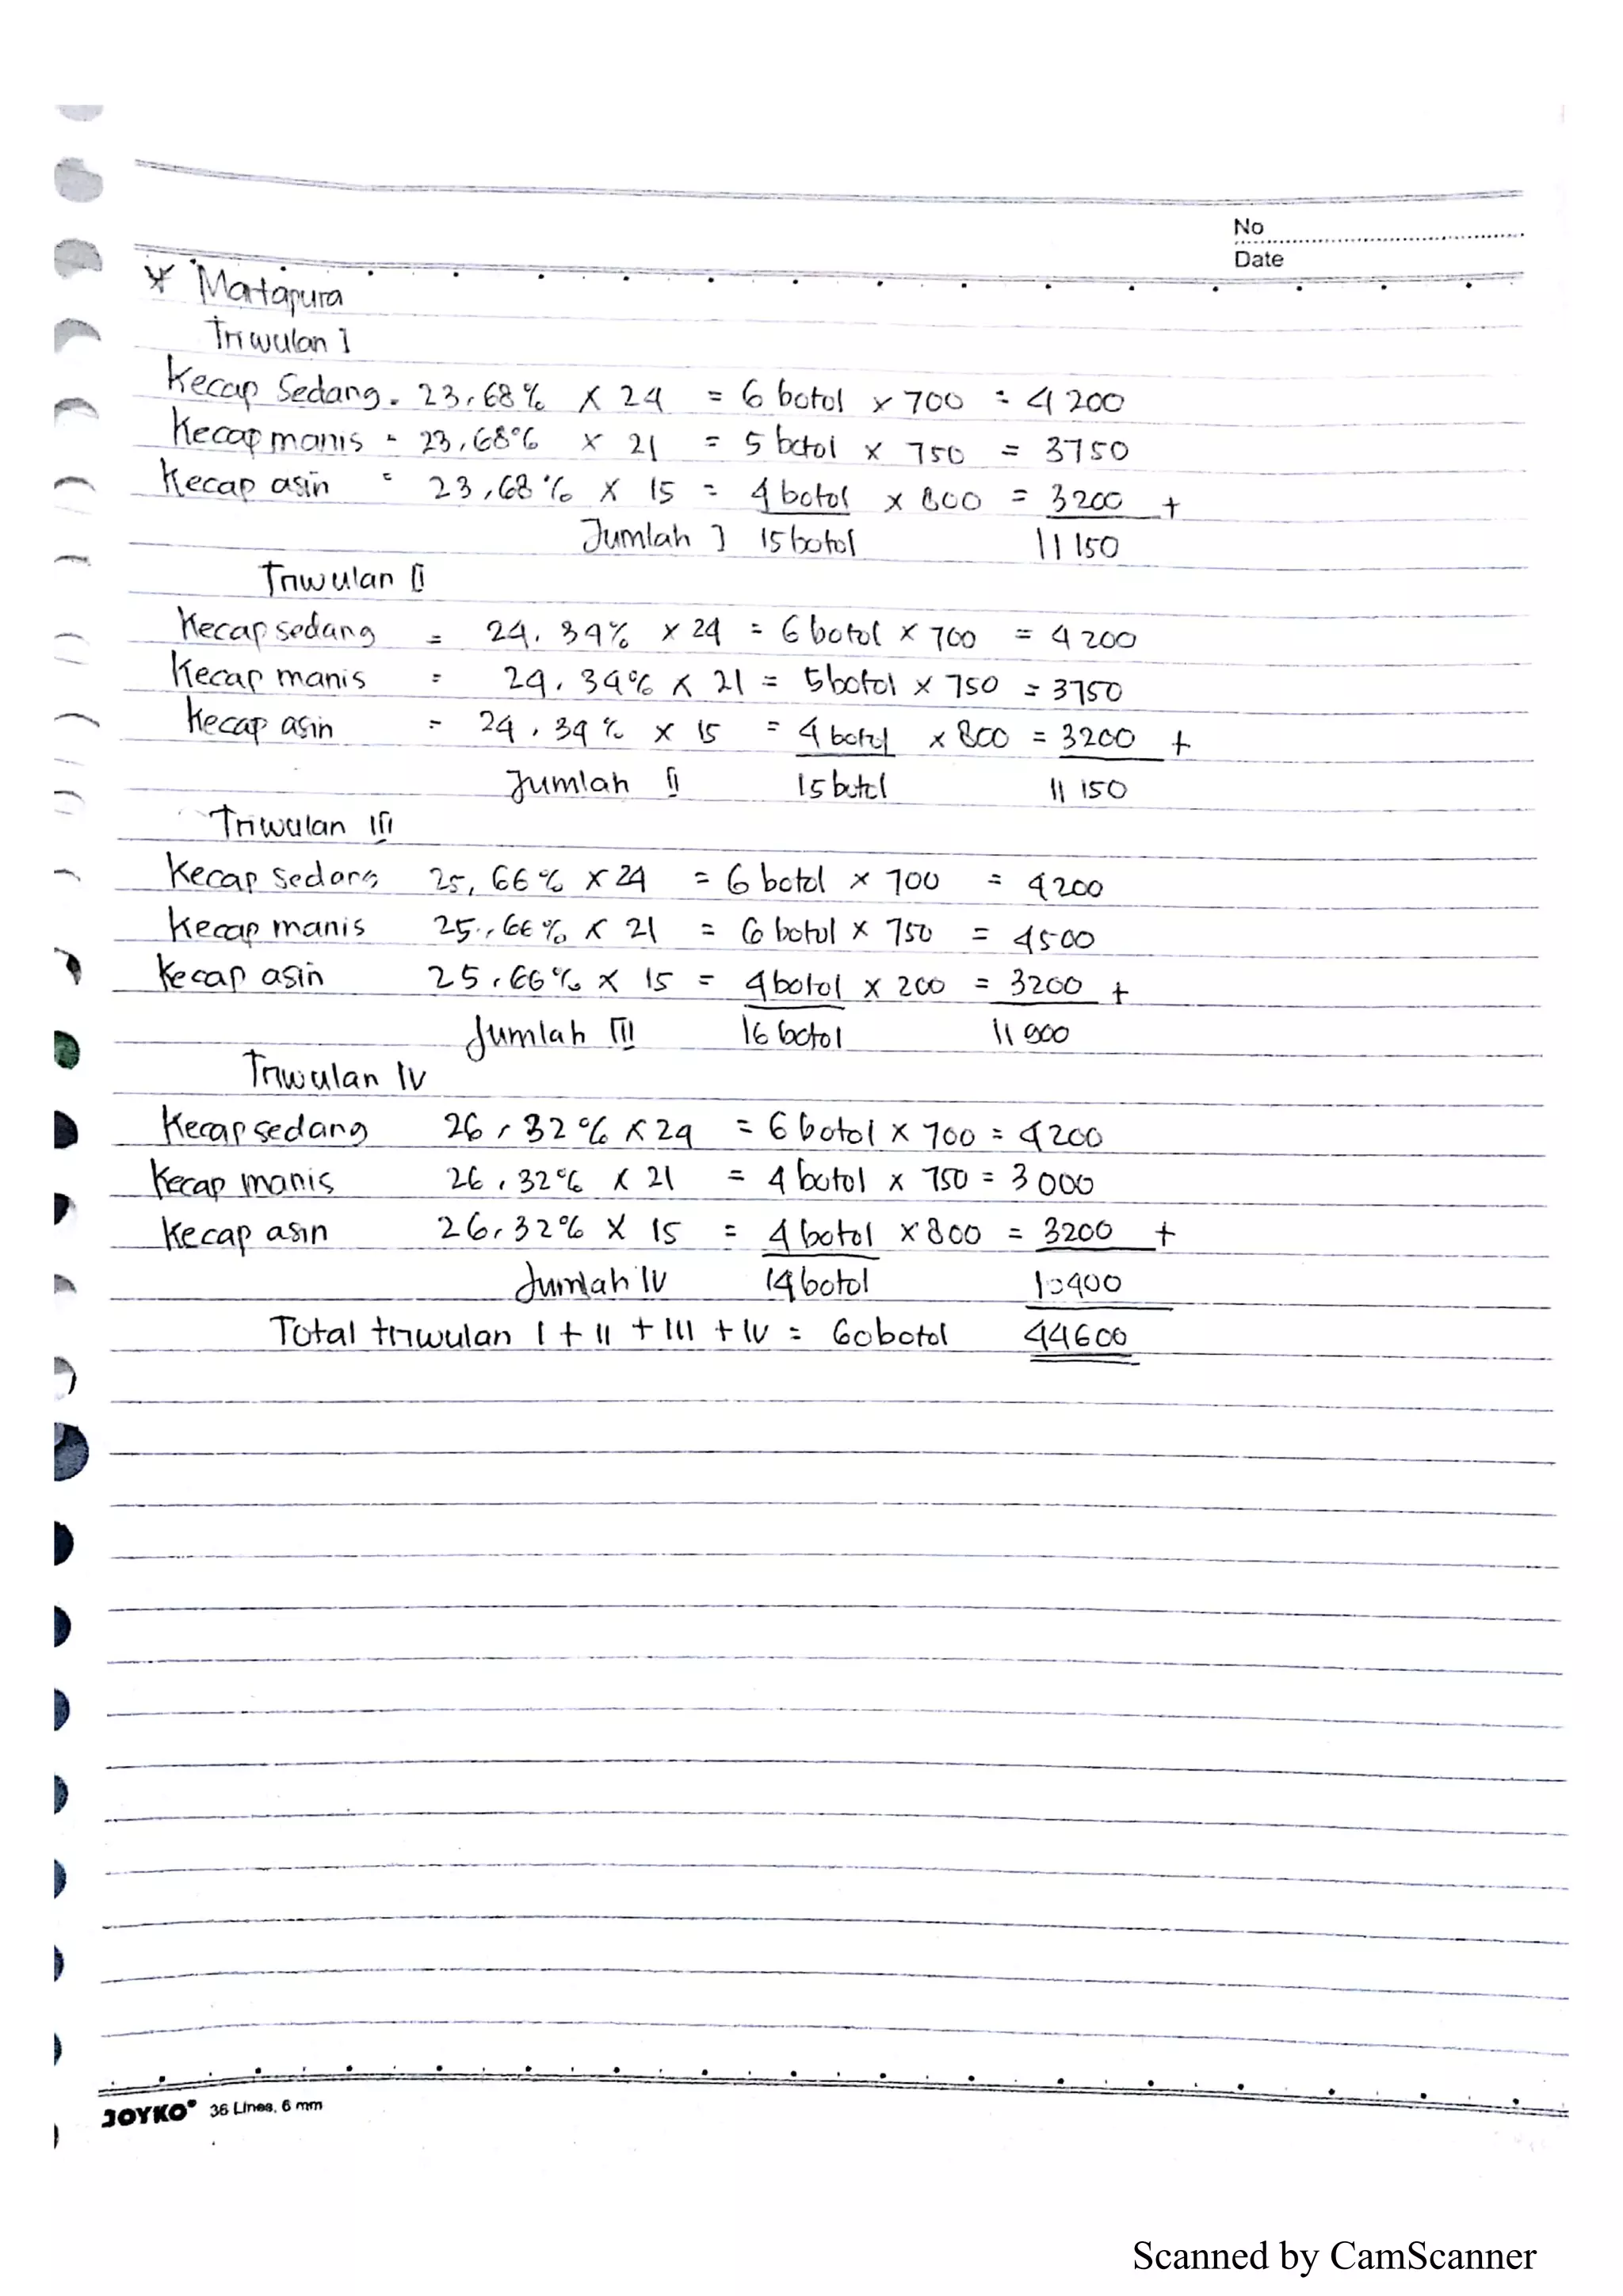 No
Date
* Martapura
Triwulan I
Kecap Sedang = 23,68% x 24 = 6 botol x 700 = 4200
Kecap manis = 23,68% x 21 = 5 botol x 750 = 3750
Kecap asin = 23,68% x 15 = 4 botol x 800 = 3200 +
Jumlah I 15 botol 11 150
Triwulan II
Kecap sedang = 24,34% x 24 = 6 botol x 700 = 4200
Kecap manis = 24,34% x 21 = 5 botol x 750 = 3750
Kecap asin = 24,34% x 15 = 4 botol x 800 = 3200 +
Jumlah II 15 botol 11 150
Triwulan III
Kecap sedang 25,66% x 24 = 6 botol x 700 = 4200
Kecap manis 25,66% x 21 = 6 botol x 750 = 4500
Kecap asin 25,66% x 15 = 4 botol x 200 = 3200 +
Jumlah III 16 botol 11 900
Triwulan IV
Kecap sedang 26,32% x 24 = 6 botol x 700 = 4200
Kecap manis 26,32% x 21 = 4 botol x 750 = 3000
Kecap asin 26,32% x 15 = 4 botol x 800 = 3200 +
Jumlah IV 14 botol 10400
Total triwulan I + II + III + IV = 60 botol 44600
JOYKO 36 Lines, 6 mm
Scanned by CamScanner